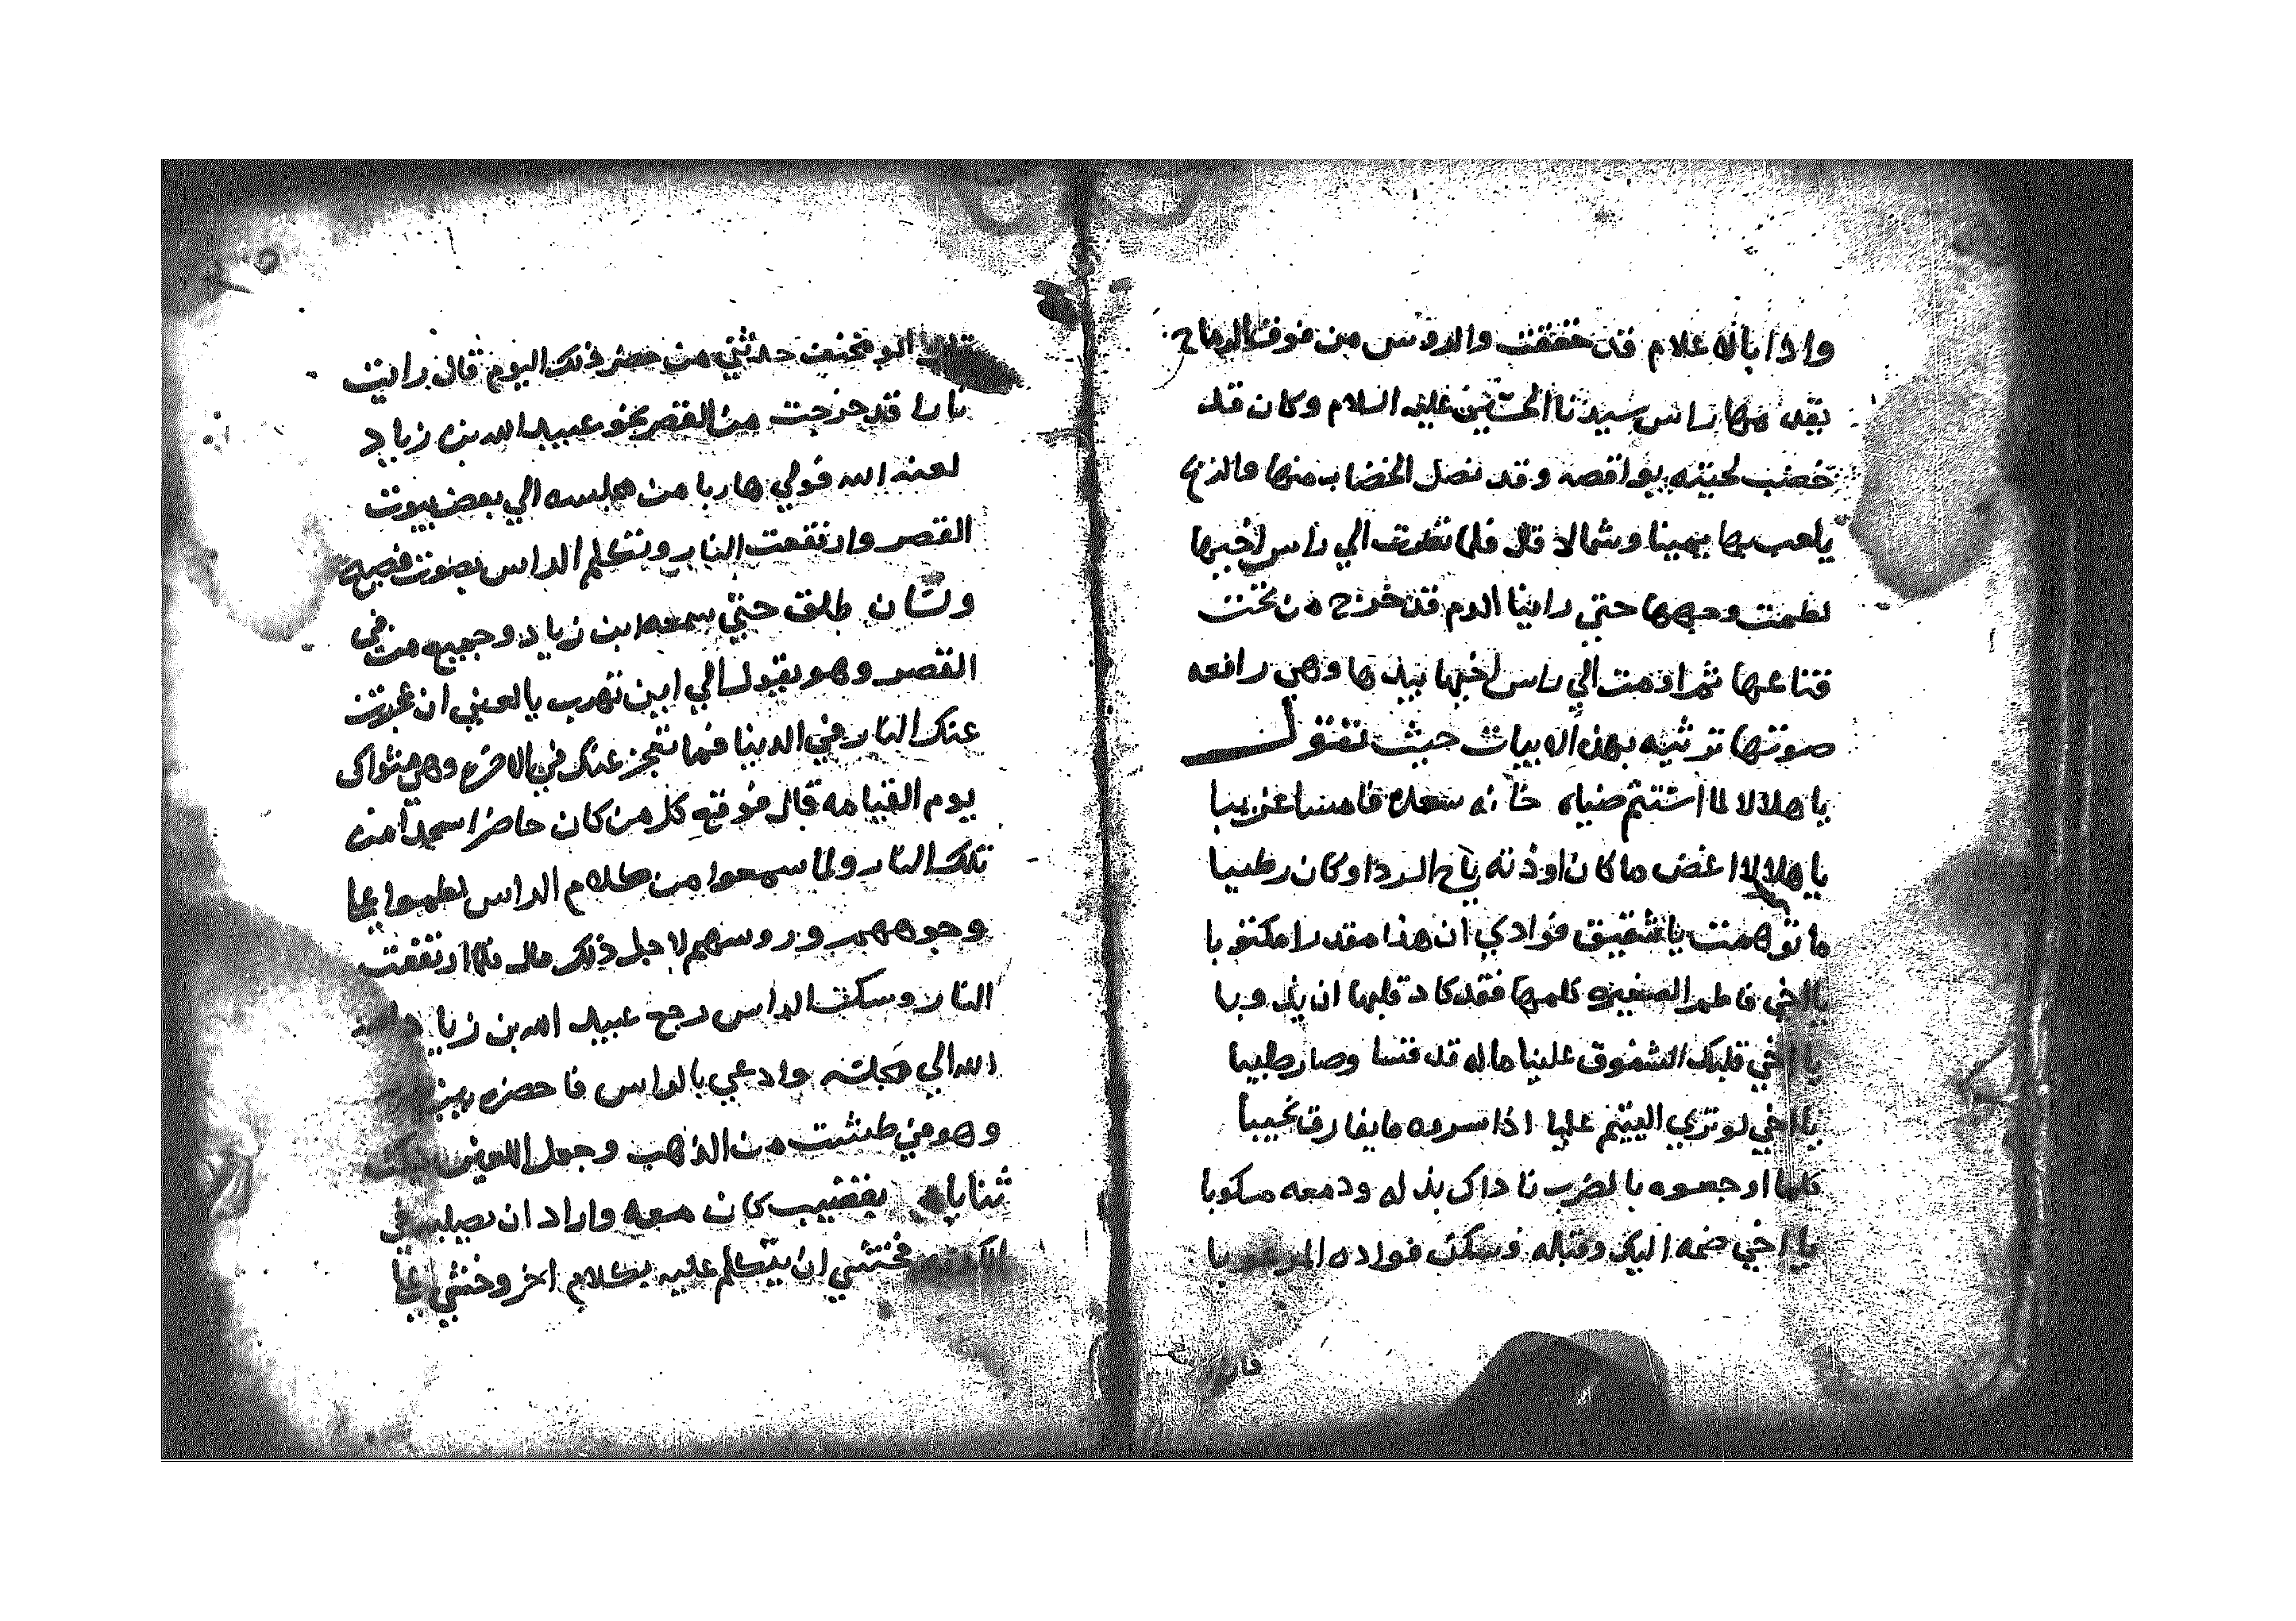 واذا بالاعلام قد خفقت والروس من فوق الرماح
يقدمها راس سيدنا الحسين عليه السلام وكان قد
خضب لحيته وقد نصل الخضاب منها والريح
يلعب بها يمينا وشمالا قال فلما نظرت الي راس اخيها
لطمت وجهها حتي راينا الدم قد خرج من تحت
قناعها ثم اومت الي راس اخيها بيدها وهي رافعه
صوتها ترثيه بهذه الابيات حيث تقول
يا هلالا لما استتم ضياه خانه سعده فامسا غريبا
يا هلالا غض ما كان الردا وكان رطيبا
ما توهمت يا شقيق فوادي ان هذا مقدرا مكتوبا
يا اخي فاطم الصغيره كلمها فقد كاد قلبها ان يذوبا
يا اخي قلبك الشفوق علينا ماله قد قسا وصار طبيا
يا اخي لو تري اليتيم عليا اذا اسروه ما يفارق نحيبا
كلما اوجعوه بالضرب ناداك بذله ودمعه مسكوبا
يا اخي ضمه اليك وقبله وسكن فواده المرعوبا
قال
قال ابو مخنف حدثني من حضر ذلك اليوم قال رايت
نارا قد خرجت من القصر نحو عبيد الله بن زياد
لعنه الله فولي هاربا من مجلسه الي بعض بيوت
القصر وارتفعت النار وتكلم الراس بصوت فصيح
ولسان طلق حتي سمعه ابن زياد وجميع من في
القصر وهو يقول الي اين تهرب يا لعين ان عجزت
عنك النار في الدينا فما تعجز عنك في الاخره وهي مثواك
يوم القيامه قال فوقع كل من كان حاضرا سجدا من
تلك النار ولما سمعوا من كلام الراس لطموا علي
وجوههم وروسهم لاجل ذلك قال فلما ارتفعت
النار وسكت الراس رجع عبيد الله بن زياد لعنه
الله الي مجلسه وادعي بالراس فاحضره بين يديه
وهو في طشت من الذهب وجعل اللعين ينكث
ثناياه بقضيب كان معه واراد ان يصلبه في
فخشي ان يتكلم عليه بكلام اخر وخشي علي